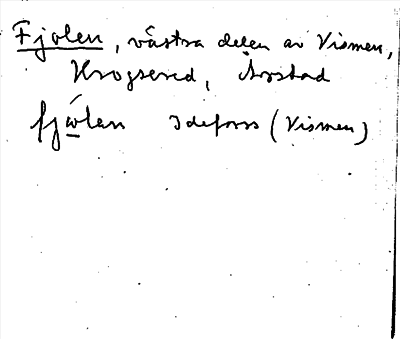 Fjolen, västra delen av Vismen,
Krogsered, Årstad
fjòlan Idefors (Vismen)